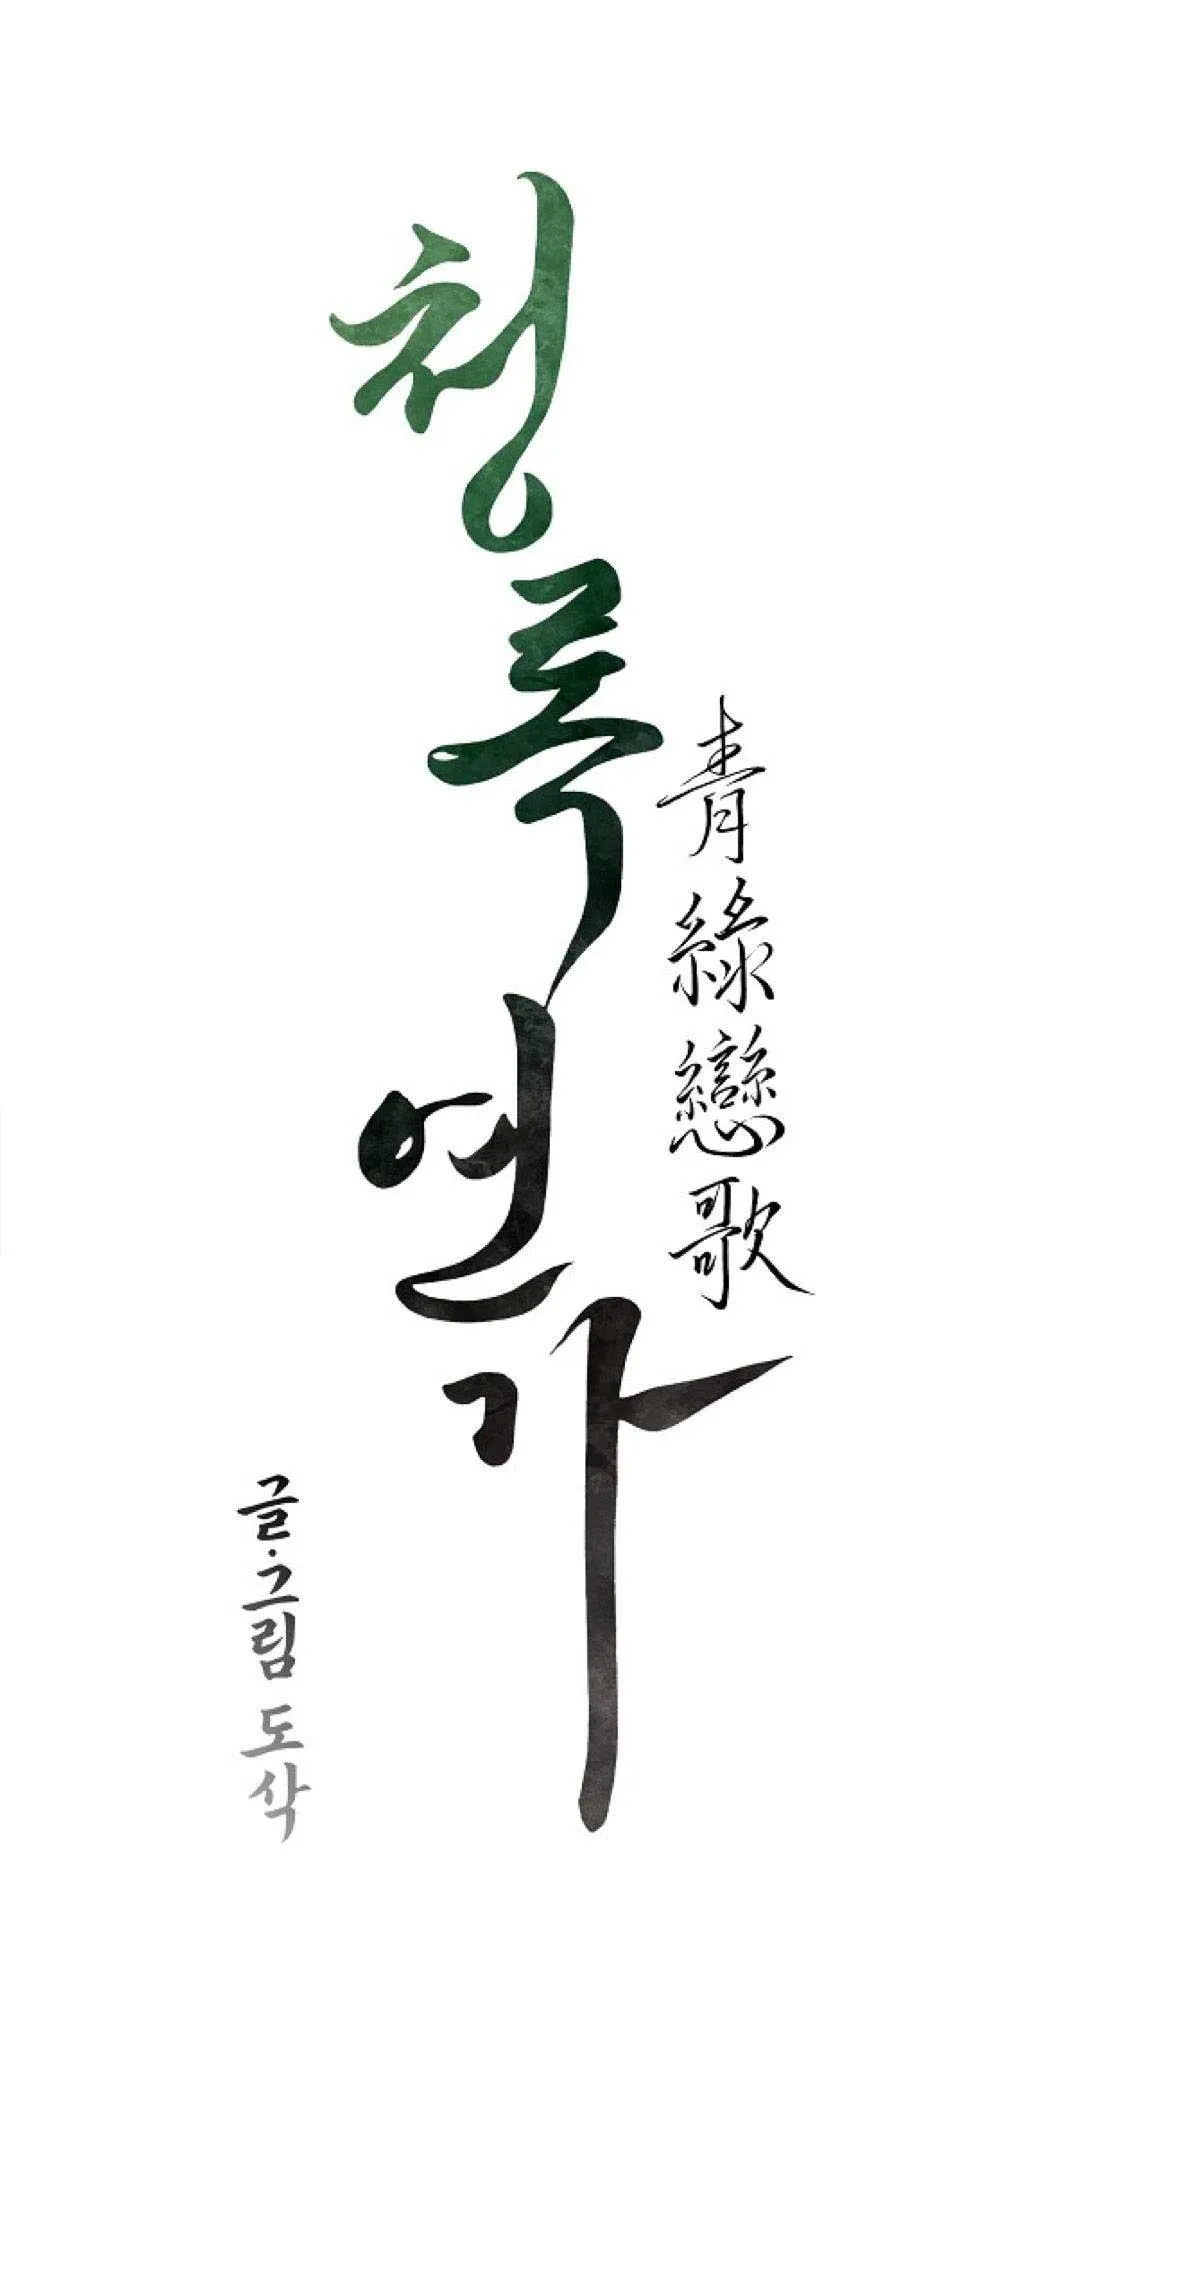 청록연가
青綠戀歌
글·그림 도삭